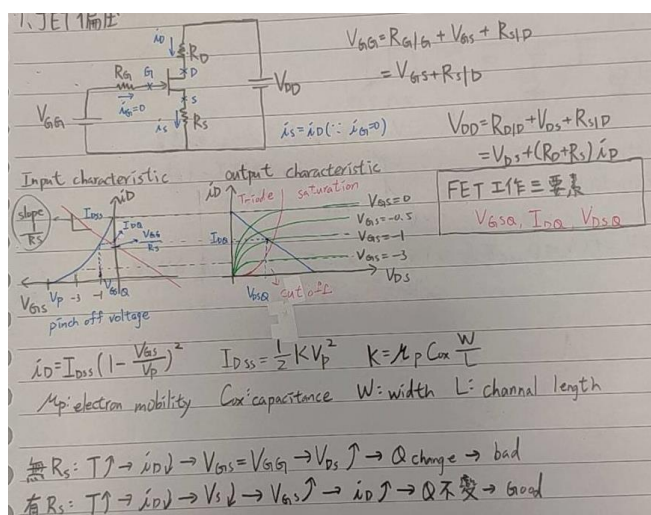 1. JFET偏壓
iD
RD
D
RG
G
iG=0
S
iS
RS
VGG
VDD
iS=iD(∵ iG=0)
VGG=RGiG+VGS+RSiD
=VGS+RSiD
VDD=RDiD+VDS+RSiD
=VDS+(RD+RS)iD
FET工作三要素
VGSQ, IDQ, VDSQ
Input characteristic
iD
IDSS
slope
1
RS
IDQ
VGG
RS
VGS
VP
-3
-1
VGSQ
pinch off voltage
output characteristic
iD
Triode
saturation
VGS=0
VGS=-0.5
VGS=-1
VGS=-3
IDQ
VDSQ
VDS
cut off
iD=IDSS(1-VGS/VP)² IDSS=½KVP² K=μpCox W/L
μp:electron mobility Cox:capacitance W:width L:channal length
無RS: T↑→iD↓→VGS=VGG→VDS↑→Q change→bad
有RS: T↑→iD↓→VS↓→VGS↑→iD↑→Q不變→Good